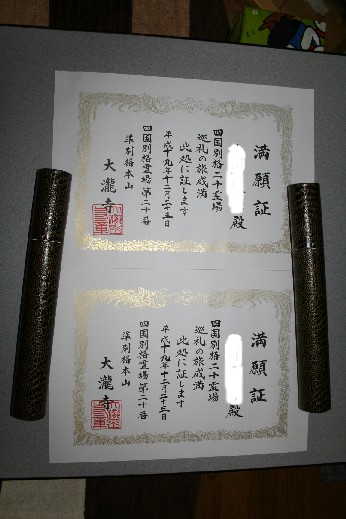 満願証
殿
四国別格二十霊場
巡礼の旅成満
此処に証します
平成十九年十二月二十三日
四国別格霊場第二十番
準別格本山
大瀧寺
満願証
殿
四国別格二十霊場
巡礼の旅成満
此処に証します
平成十九年十二月二十三日
四国別格霊場第二十番
準別格本山
大瀧寺